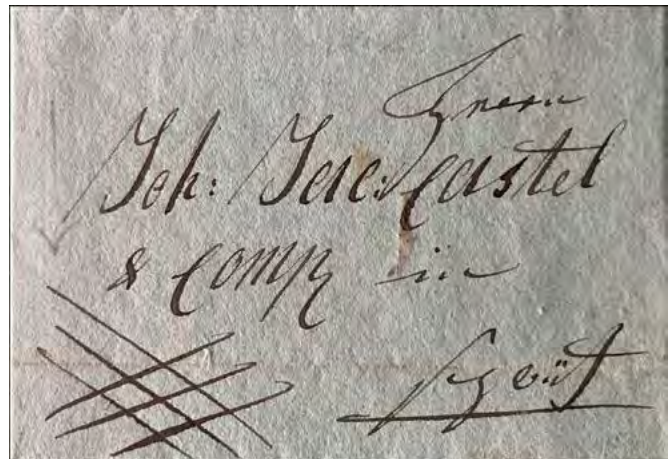 Herrn
Joh: Jac: Castel
& Comp in